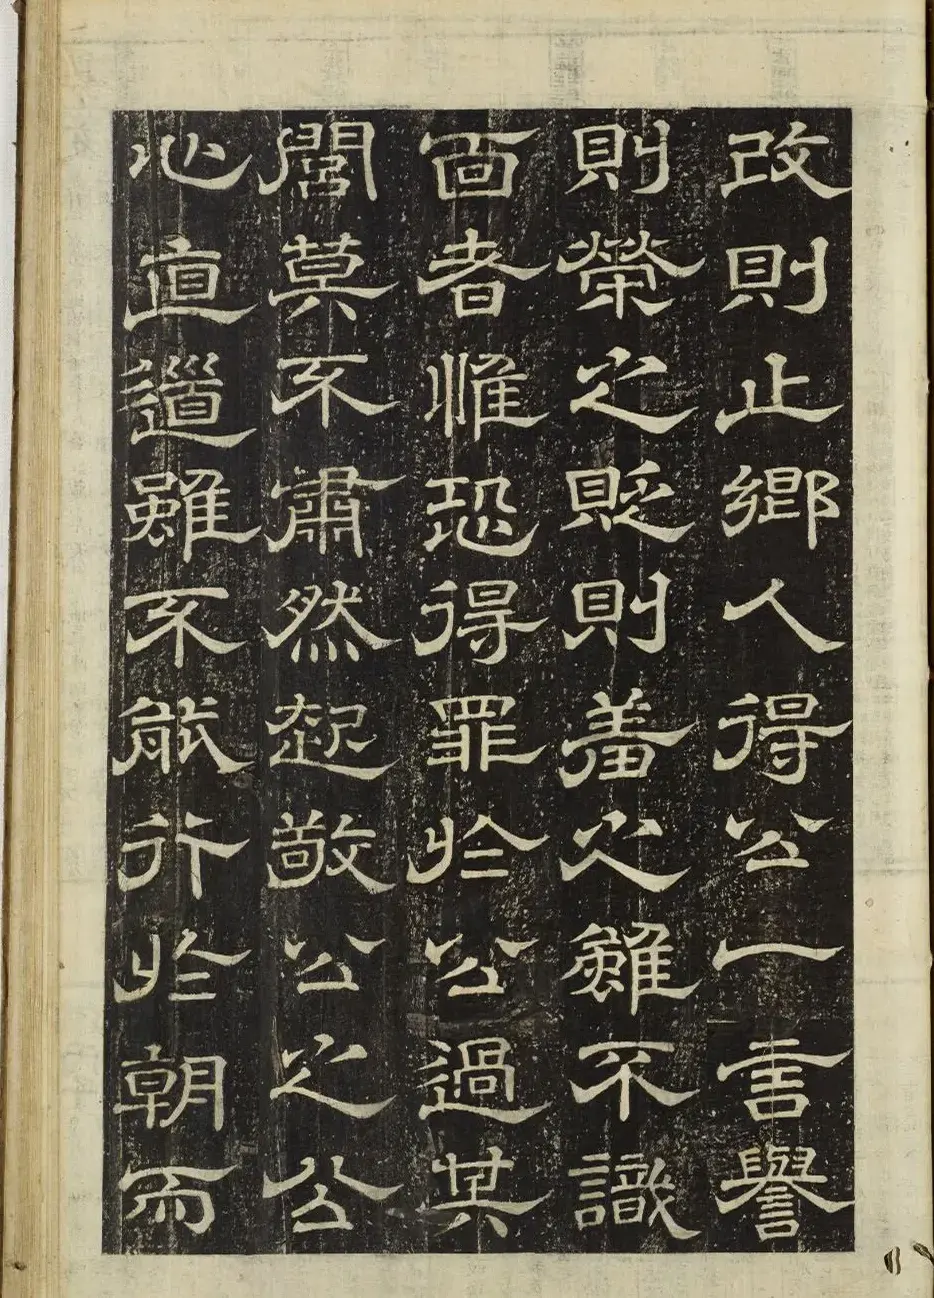 改則止鄉人得公一言譽
則榮之貶則羞之雖不識
面者惟恐得罪於公過其
閭莫不肅然起敬公之公
心直道雖不能行於朝而